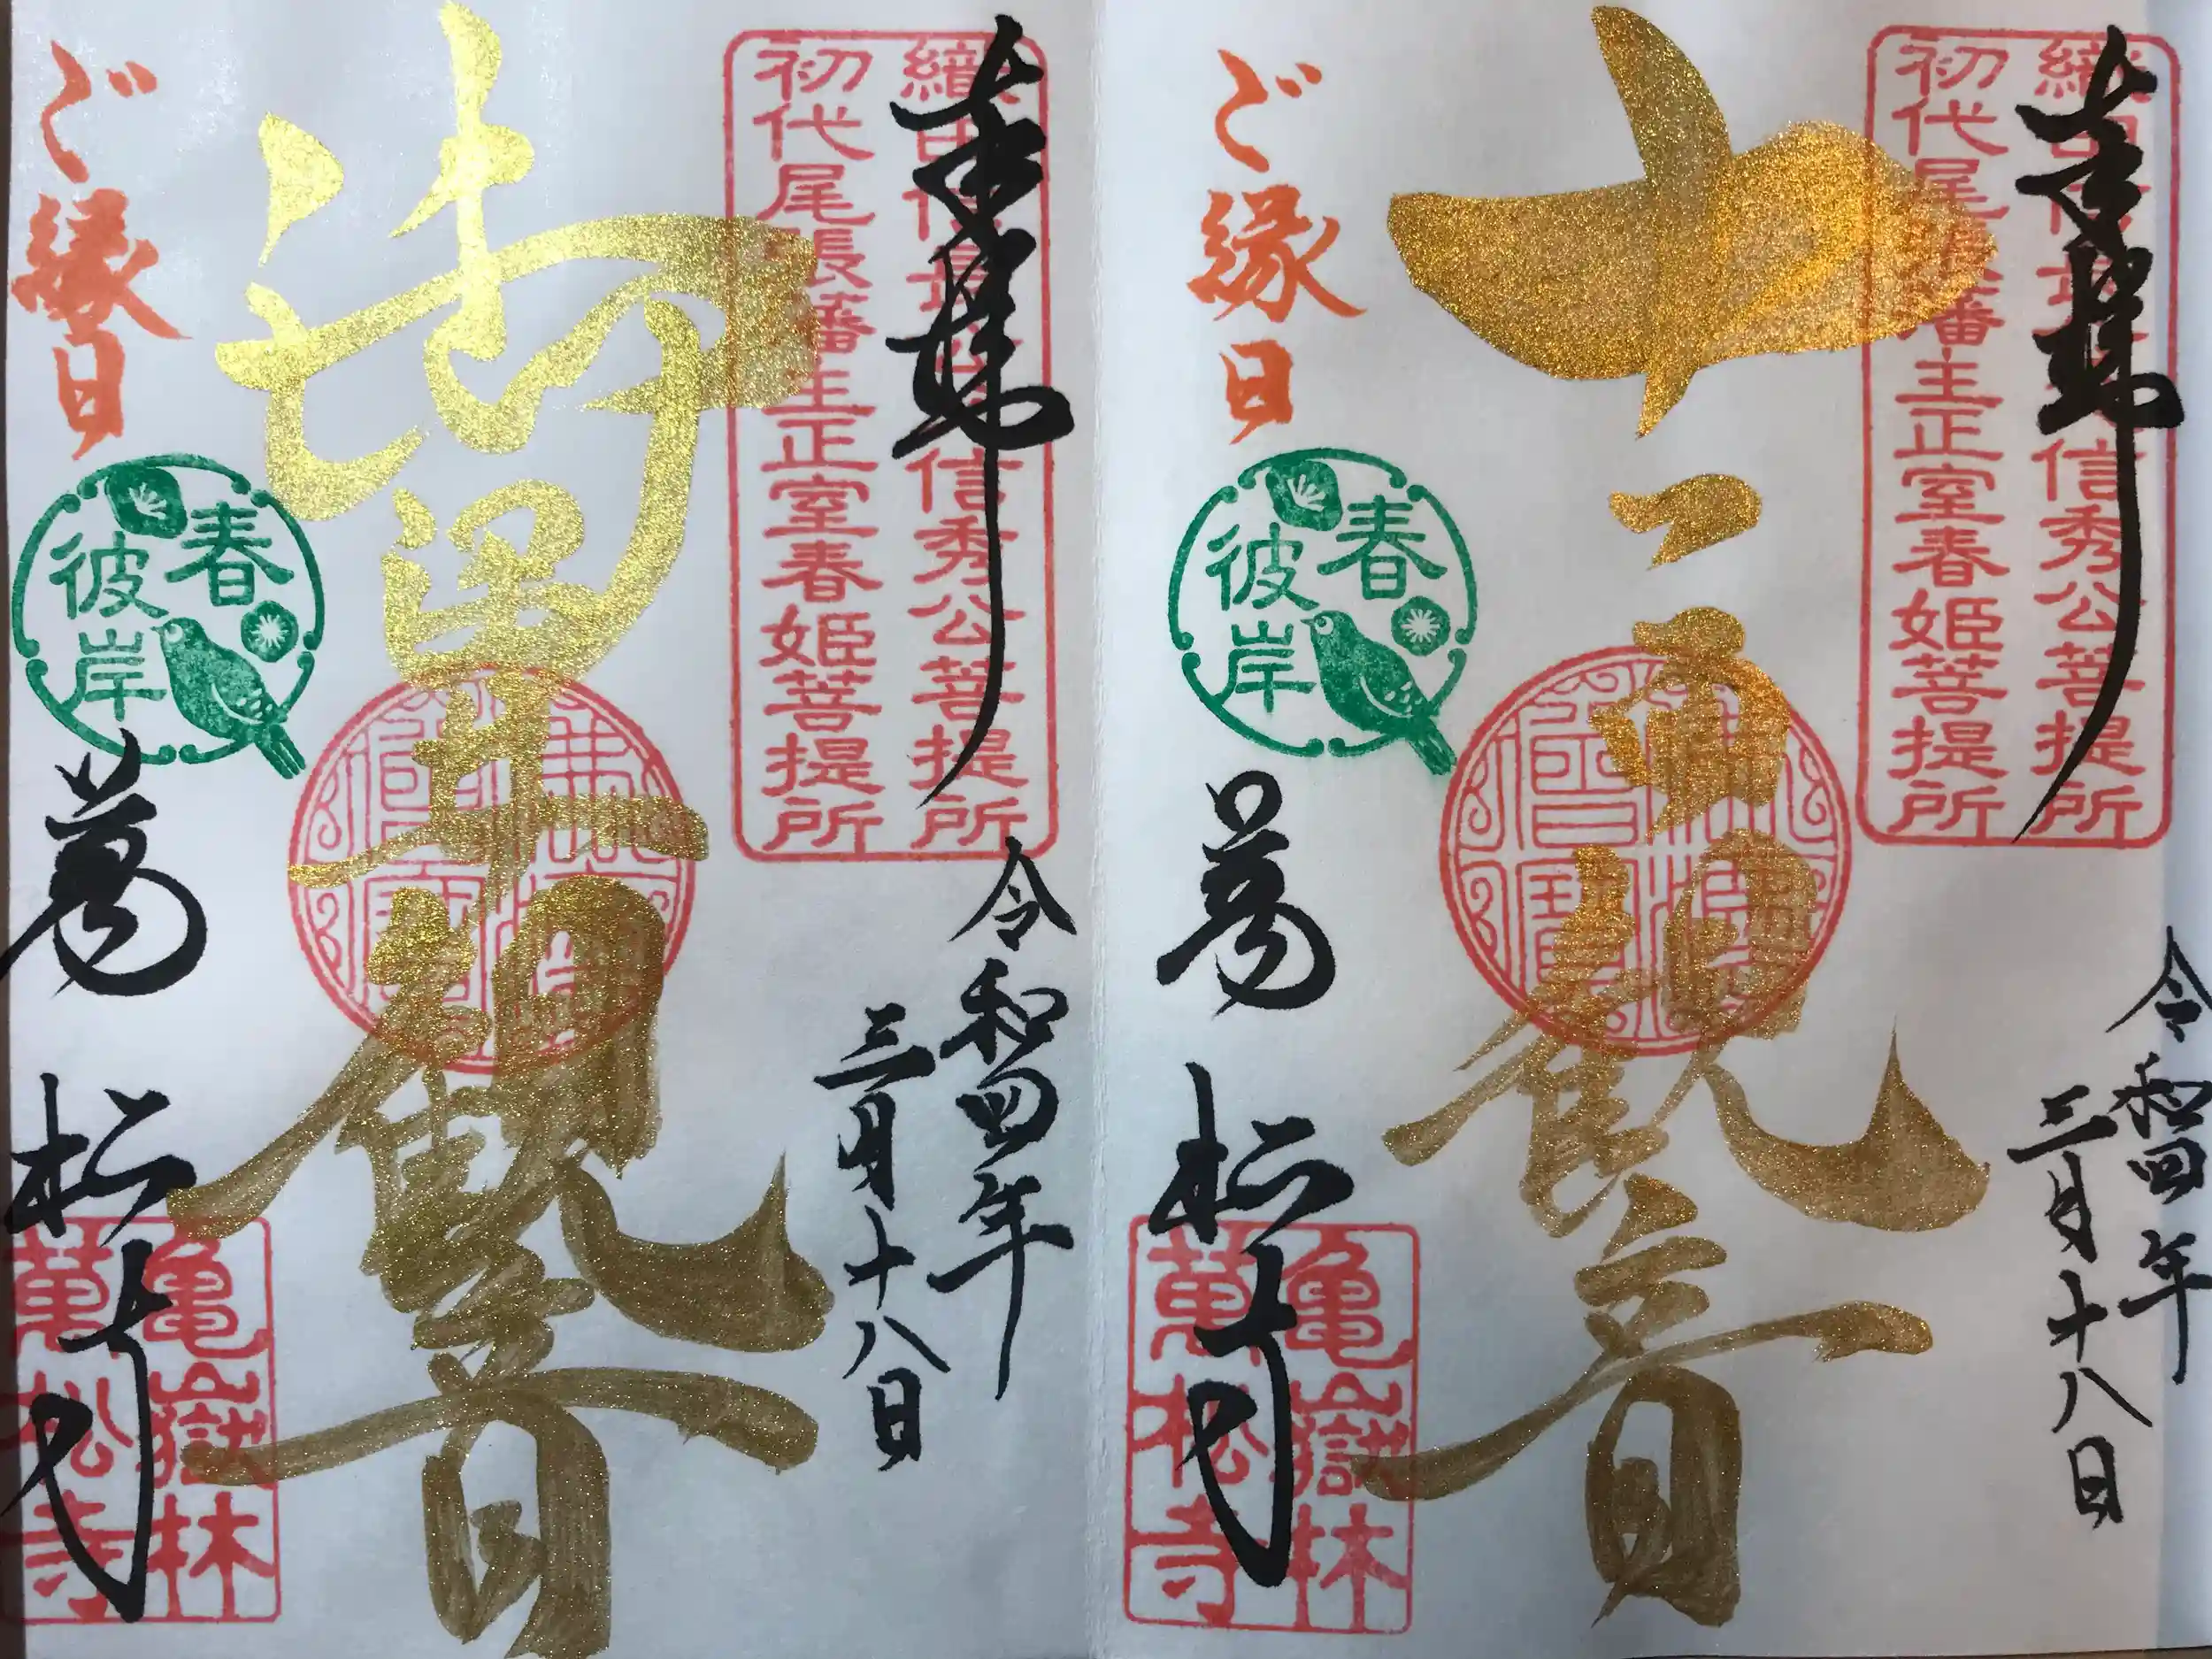 奉拝
織田信長父信秀公菩提所
初代尾張藩主正室春姫菩提所
令和四年
三月十八日
十一面観音
ご縁日
春彼岸
萬松寺
亀嶽林
萬松寺
奉拝
織田信長父信秀公菩提所
初代尾張藩主正室春姫菩提所
令和四年
三月十八日
観音
ご縁日
春彼岸
萬松寺
亀嶽林
萬松寺